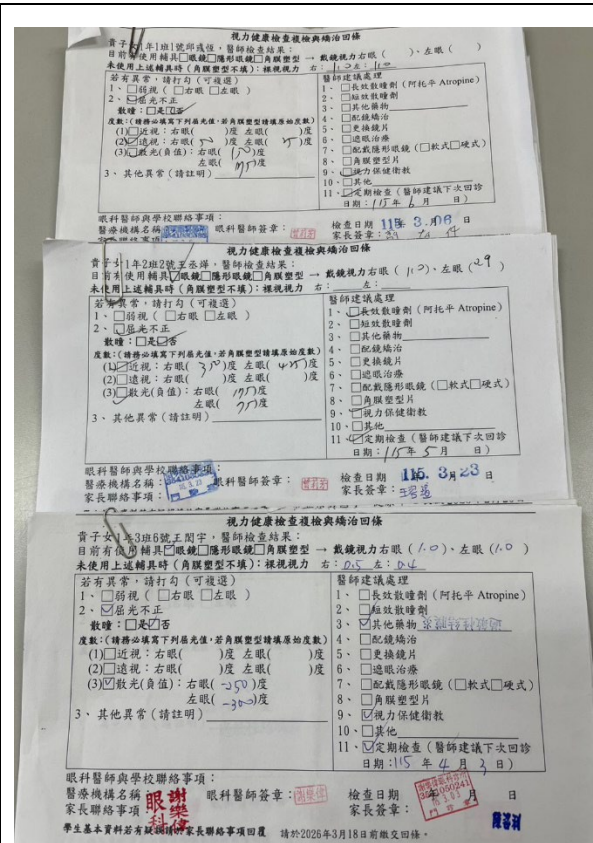 視力健康檢查複檢與矯治回條
貴子女1年1班1號邱彧恆，醫師檢查結果：
目前有使用輔具□眼鏡□隱形眼鏡□角膜塑型 → 戴鏡視力右眼（ ）、左眼（ ）
未使用上述輔具時（角膜塑型不填）：裸視視力 右：1.0 左：1.0
若有異常，請打勾（可複選）
1、□弱視（□右眼 □左眼）
2、☑屈光不正
散瞳：□是☑否
度數：(請務必填寫下列屈光值，若角膜塑型請填原始度數)
(1)□近視：右眼( )度 左眼( )度
(2)☑遠視：右眼( 50 )度 左眼( 25 )度
(3)☑散光(負值)：右眼( 150 )度
左眼( 175 )度
3、其他異常（請註明）
醫師建議處理
1、□長效散瞳劑（阿托平 Atropine）
2、□短效散瞳劑
3、□其他藥物
4、□配鏡矯治
5、□更換鏡片
6、□遮眼治療
7、□配戴隱形眼鏡（□軟式□硬式）
8、□角膜塑型片
9、☑視力保健衛教
10、□其他
11、☑定期檢查（醫師建議下次回診
日期：115年 6月 日）
眼科醫師與學校聯絡事項：
醫療機構名稱： 眼科醫師簽章： 檢查日期 115. 3. 06 日
家長聯絡事項： 家長簽章：
視力健康檢查複檢與矯治回條
貴子女1年2班2號王丞燁，醫師檢查結果：
目前有使用輔具☑眼鏡□隱形眼鏡□角膜塑型 → 戴鏡視力右眼（1.0）、左眼（ ）
未使用上述輔具時（角膜塑型不填）：裸視視力 右： 左：
若有異常，請打勾（可複選）
1、□弱視（□右眼 □左眼）
2、☑屈光不正
散瞳：□是☑否
度數：(請務必填寫下列屈光值，若角膜塑型請填原始度數)
(1)☑近視：右眼( 350 )度 左眼( 425 )度
(2)□遠視：右眼( )度 左眼( )度
(3)☑散光(負值)：右眼( 175 )度
左眼( 75 )度
3、其他異常（請註明）
醫師建議處理
1、☑長效散瞳劑（阿托平 Atropine）
2、□短效散瞳劑
3、□其他藥物
4、□配鏡矯治
5、□更換鏡片
6、□遮眼治療
7、□配戴隱形眼鏡（□軟式□硬式）
8、□角膜塑型片
9、☑視力保健衛教
10、□其他
11、☑定期檢查（醫師建議下次回診
日期：115年 5月 日）
眼科醫師與學校聯絡事項：
醫療機構名稱： 眼科醫師簽章： 檢查日期 115. 3月 23 日
家長聯絡事項： 家長簽章：
視力健康檢查複檢與矯治回條
貴子女1年3班6號王閎宇，醫師檢查結果：
目前有使用輔具☑眼鏡□隱形眼鏡□角膜塑型 → 戴鏡視力右眼（1.0）、左眼（1.0）
未使用上述輔具時（角膜塑型不填）：裸視視力 右：0.5 左：0.4
若有異常，請打勾（可複選）
1、□弱視（□右眼 □左眼）
2、☑屈光不正
散瞳：□是☑否
度數：(請務必填寫下列屈光值，若角膜塑型請填原始度數)
(1)□近視：右眼( )度 左眼( )度
(2)□遠視：右眼( )度 左眼( )度
(3)☑散光(負值)：右眼( -250 )度
左眼( -300 )度
3、其他異常（請註明）
醫師建議處理
1、□長效散瞳劑（阿托平 Atropine）
2、□短效散瞳劑
3、☑其他藥物
4、□配鏡矯治
5、□更換鏡片
6、□遮眼治療
7、□配戴隱形眼鏡（□軟式□硬式）
8、□角膜塑型片
9、☑視力保健衛教
10、□其他
11、☑定期檢查（醫師建議下次回診
日期：115年 4月 3日）
眼科醫師與學校聯絡事項：
醫療機構名稱：謝樂偉眼科 眼科醫師簽章：謝樂偉 檢查日期 年 月 日
家長聯絡事項： 家長簽章：
學生基本資料若有疑誤請於家長聯絡事項回覆 請於2026年3月18日前繳交回條。